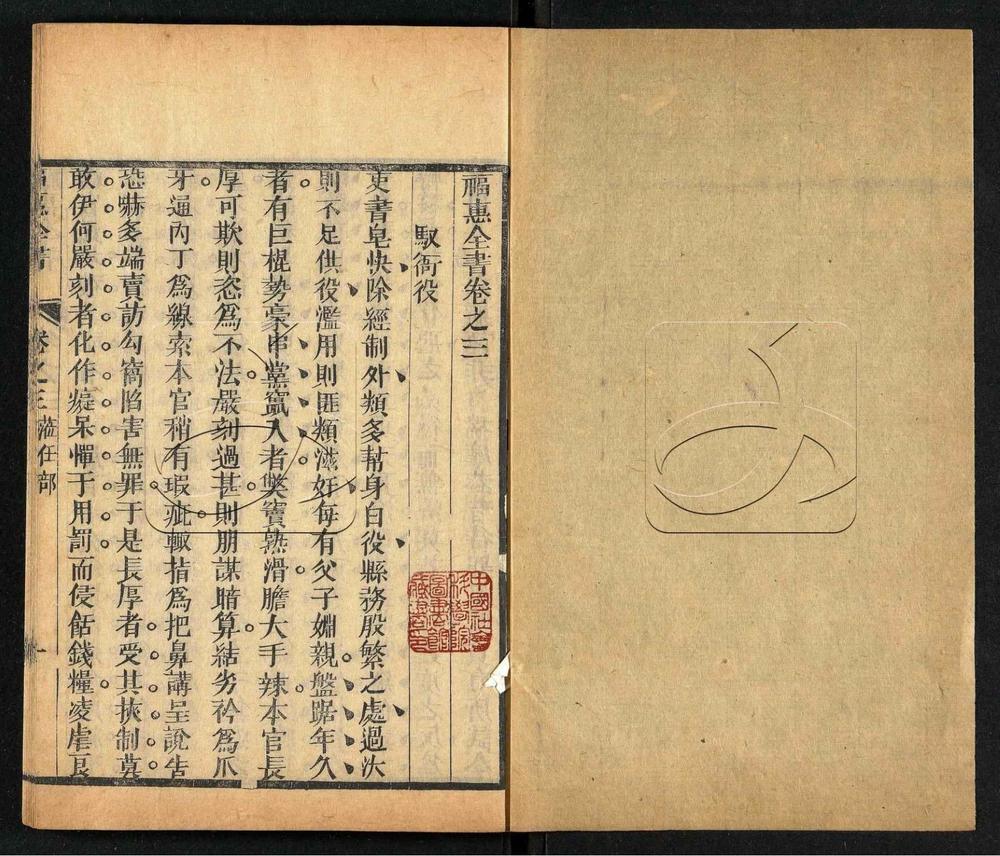 福惠全書卷之三
馭衙役
吏書皂快除經制外類多幇身白役縣務殷繁之處過汰
則不足供役濫用則匪類滋奸每有父子婣親盤踞年久
者有巨棍勢豪串黨竄入者獘竇熟滑膽大手辣本官長
厚可欺則恣為不法嚴刻過甚則朋謀暗算結劣衿為爪
牙逼丙丁為線索本官稍有瑕疵輙揞為把鼻講呈說告
恐嚇多端賣訪勾窩陷害無罪于是長厚者受其挾制莫
敢伊何嚴刻者化作癡呆憚于用罰而侵餂錢糧凌虐良
福惠全書
卷之三 蒞任部
一